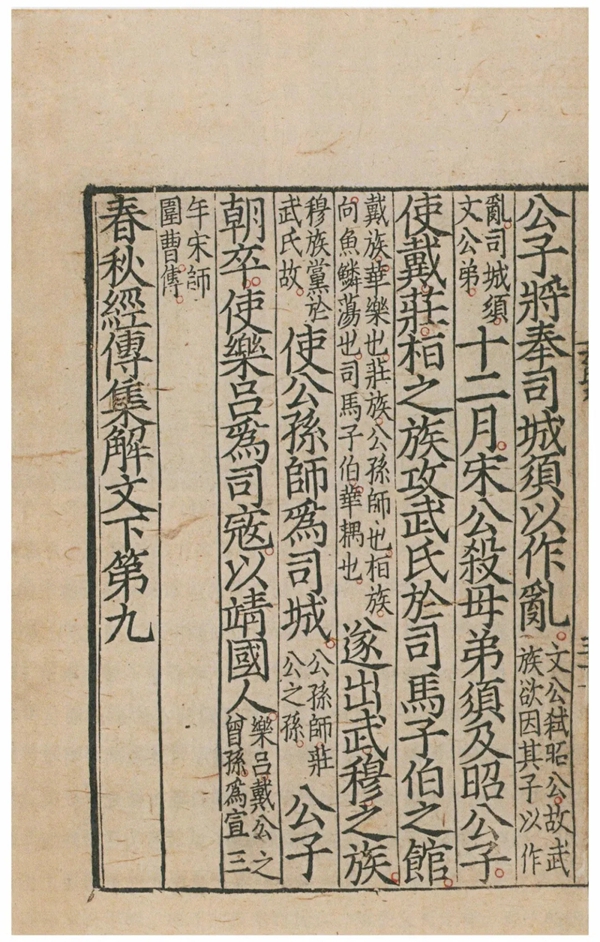 公子將奉司城須以作亂文公弑昭公故武族欲因其子以作
亂司城須文公弟十二月宋公殺母弟須及昭公子
使戴莊桓之族攻武氏於司馬子伯之館
戴族華樂也莊族公孫師也桓族向魚鱗蕩也司馬子伯華耦也遂出武穆之族
穆族黨於武氏故使公孫師爲司城公孫師莊公之孫公子
朝卒使樂呂爲司寇以靖國人樂呂戴公之曾孫爲宣三
年宋師圍曹傳
春秋經傳集解文下第九